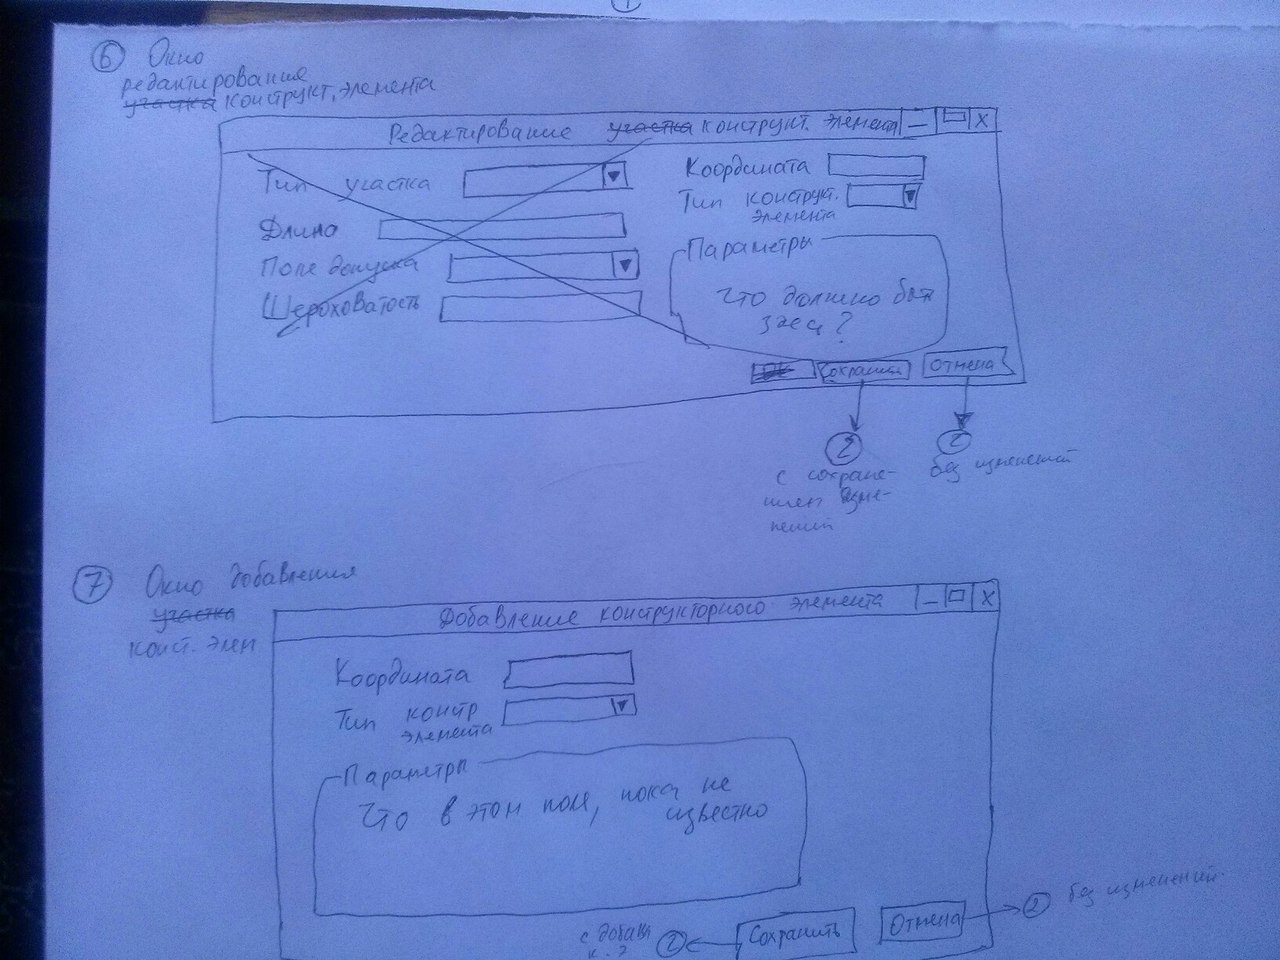 1
6 Окно
редактирования
участка конструкт. элемента
Редактирование участка конструкт. элемента _ X
Тип участка
Длина
Поле допуска
Шероховатость
Координата
Тип конструкт.
элемента
Параметры
Что должно быть
здесь?
ОК Сохранить Отмена
2 2
с сохране-
нием изме-
нений
без изменений
7 Окно добавления
участка
конст. элем
Добавление конструкторного элемента _ X
Координата
Тип констр
элемента
Параметры
Что в этом поле, пока не
известно
Сохранить Отмена
2 без изменений.
с добавл
к. э
2